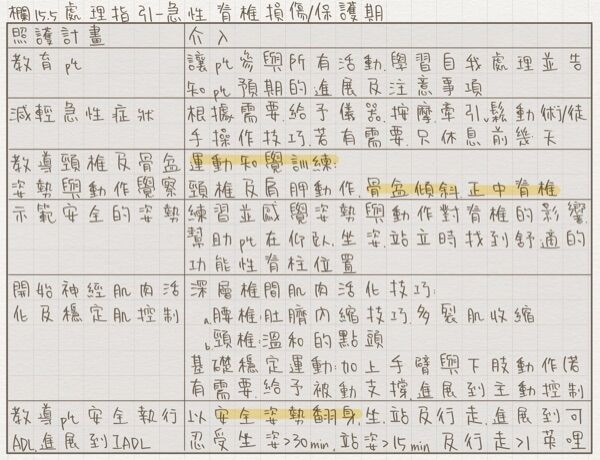 欄15.5處理指引-急性脊椎損傷/保護期
照護計畫 介入
教育pt 讓pt參與所有活動.學習自我處理並告
知pt預期的進展及注意事項
減輕急性症狀 根據需要.給予儀器.按摩.牽引.鬆動術/徒
手操作技巧.若有需要.只休息前幾天
教導頸椎及骨盆 運動知覺訓練:
姿勢與動作覺察 頸椎及肩胛動作.骨盆傾斜.正中脊椎
示範安全的姿勢 練習並感覺姿勢與動作對脊椎的影響.
幫助pt在仰臥.坐姿.站立時找到舒適的
功能性脊柱位置
開始神經肌肉活 深層椎間肌肉活化技巧:
化及穩定肌控制 a.腰椎:肚臍內縮技巧.多裂肌收縮
b.頸椎:溫和的點頭
基礎穩定運動:加上手臂與下肢動作(若
有需要.給予被動支撐.進展到主動控制
教導pt安全執行 以安全姿勢翻身.坐.站及行走.進展到可
ADL.進展到IADL 忍受坐姿>30min.站姿>15min及行走>1英哩